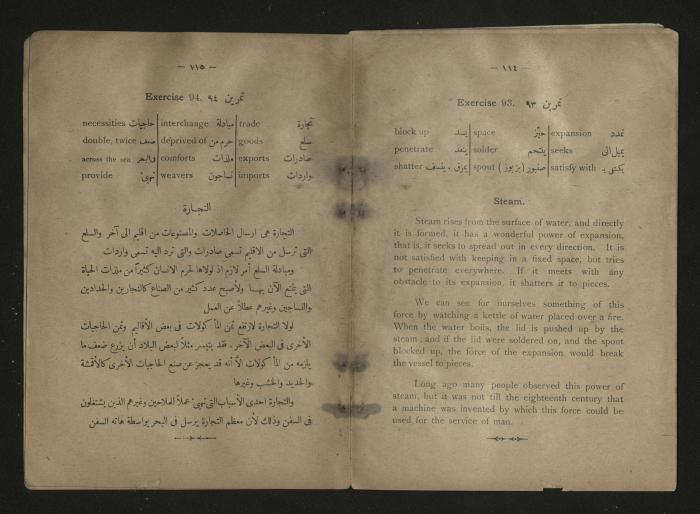 — ١١٤ —
Exercise 93. تمرين ٩٣
block up يسد space حيّز expansion تمدد
penetrate ينفذ solder يلتحم seeks يميل الى
shatter يمزق ، ينسف spout صنبور ( بزبوز ) satisfy with يكتفي بـ
Steam.
Steam rises from the surface of water, and directly
it is formed, it has a wonderful power of expansion,
that is, it seeks to spread out in every direction. It is
not satisfied with keeping in a fixed space, but tries
to penetrate everywhere. If it meets with any
obstacle to its expansion, it shatters it to pieces.
We can see for ourselves something of this
force by watching a kettle of water placed over a fire.
When the water boils, the lid is pushed up by the
steam; and if the lid were soldered on, and the spout
blocked up, the force of the expansion would break
the vessel to pieces.
Long ago many people observed this power of
steam, but it was not till the eighteenth century that
a machine was invented by which this force could be
used for the service of man.
— ١١٥ —
Exercise 94. تمرين ٩٤
necessities حاجيات interchange مبادلة trade تجارة
double, twice ضعف deprived of حرم من goods سلع
across the sea في البحر comforts ملذات exports صادرات
provide تهيئ weavers نساجون imports واردات
التجارة
التجارة هى ارسال الحاصلات والمصنوعات من اقليم الى آخر والسلع
التى ترسل من الاقليم تسمى صادرات والتى ترد اليه تسمى واردات
ومبادلة السلع أمر لازم اذ لولاها لحرم الانسان كثيرا من ملذات الحياة
التى يتمتع الآن بها ولأصبح عدد كثير من الصناع كالنجارين والحدادين
والنساجين وغيرهم عطلاً عن العمل
لولا التجارة لارتفع ثمن المأكولات فى بعض الأقاليم وثمن الحاجيات
الأخرى فى البعض الآخر . فقد يتيسر مثلاً لبعض البلاد أن يزرع ضعف ما
يلزمه من المأكولات الا أنه قد يعجز عن صنع الحاجيات الأخرى كالأقشة
والحديد والخشب وغيرها
والتجارة احدى الأسباب التى تهيئ عملا للملاحين وغيرهم الذين يشتغلون
فى السفن وذلك لأن معظم التجارة يرسل فى البحر بواسطة هاته السفن